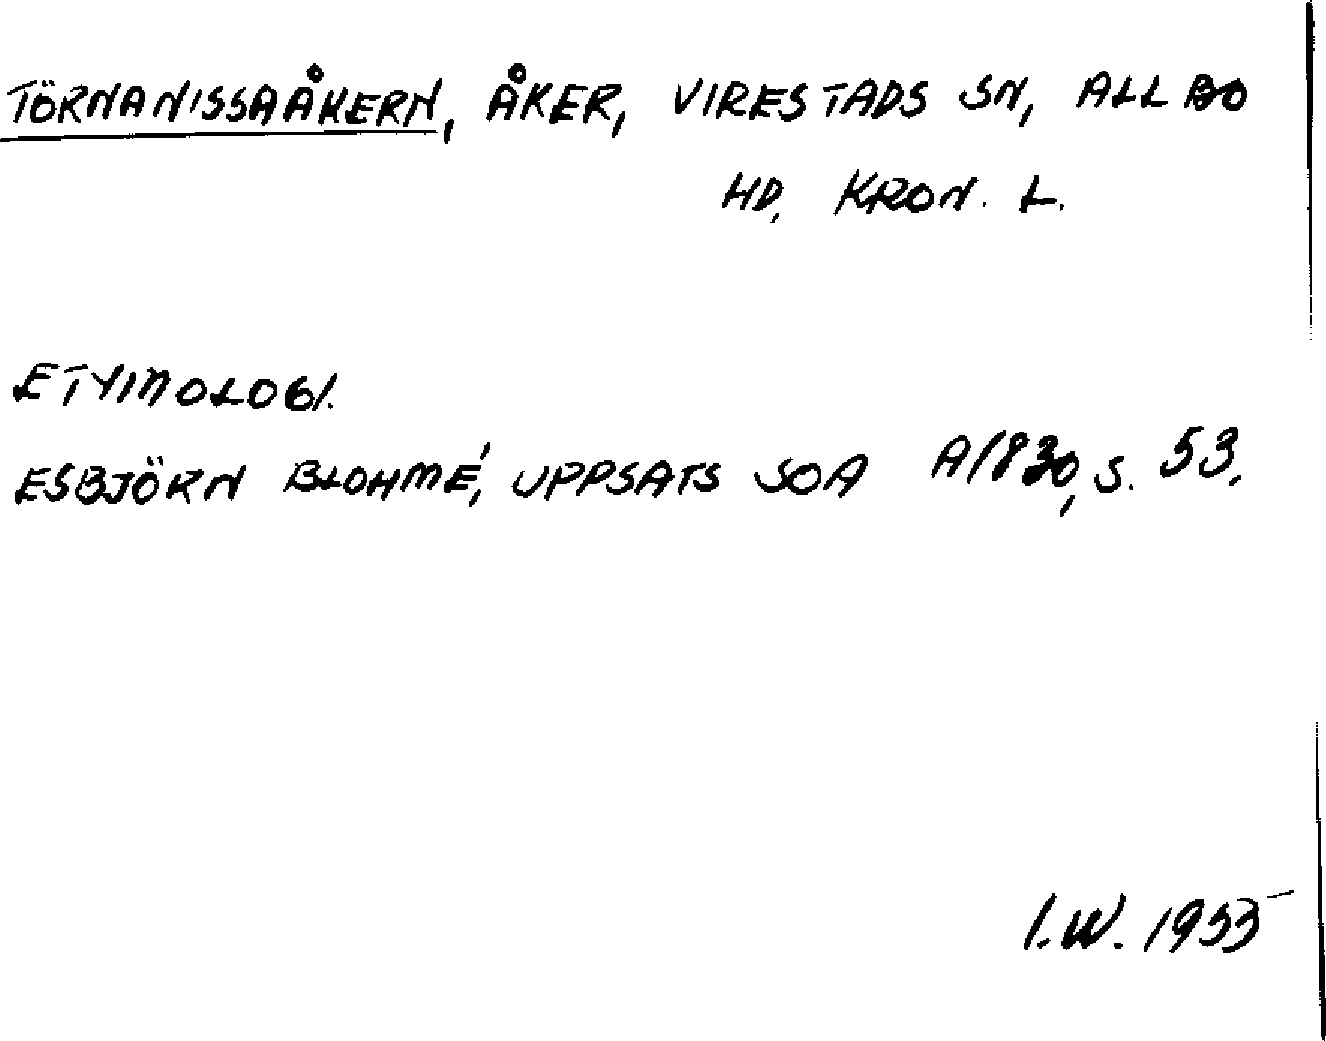 TÖRNANISSAÅKERN, ÅKER, VIRESTADS SN, ALLBO
HD, KRON. L.
ETYMOLOGI.
ESBJÖRN BLOHMÉ, UPPSATS SOA A1830, S. 53.
I.W. 1955